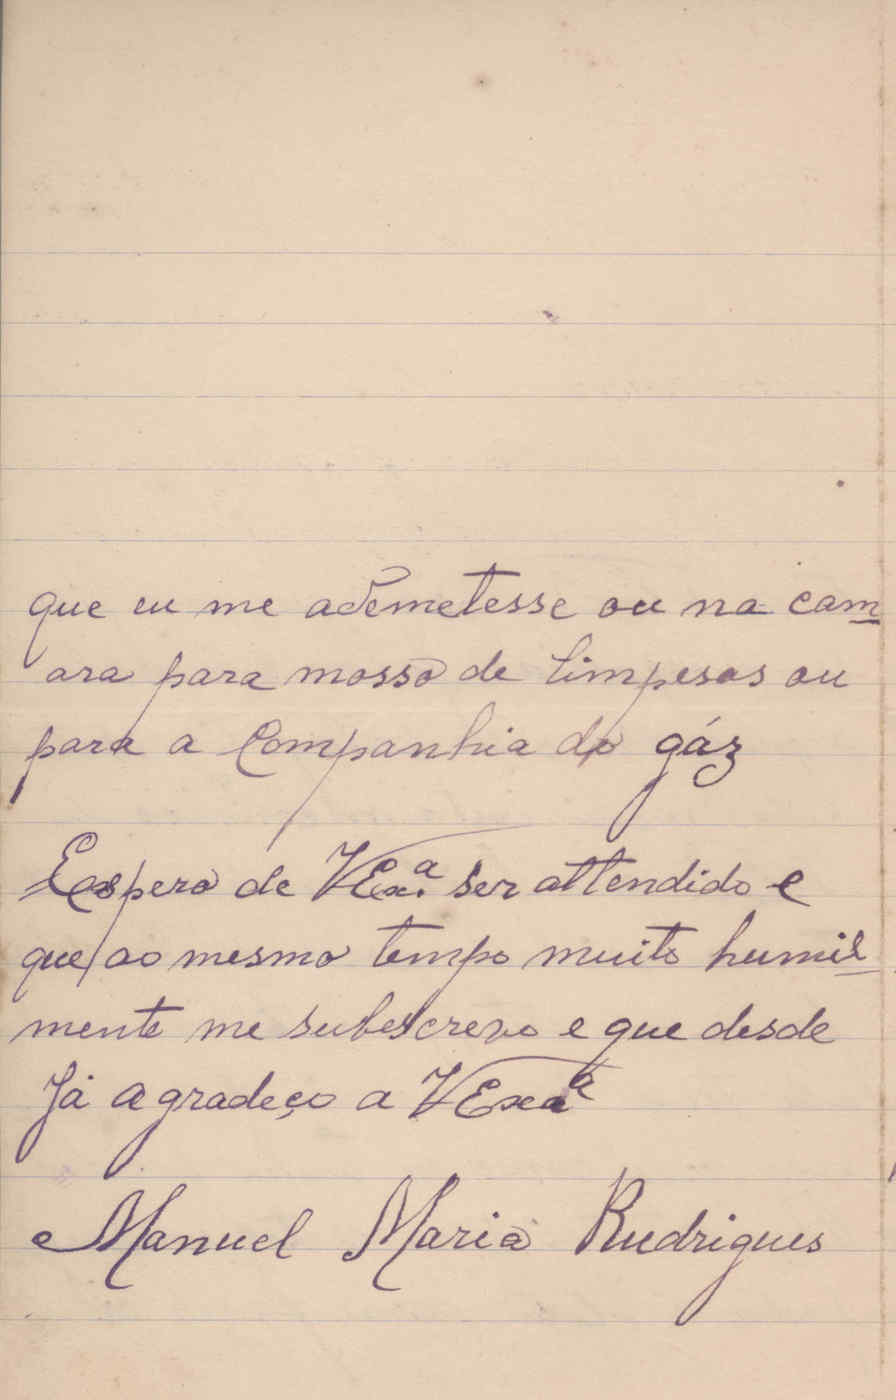 que eu me ademetesse ou na cam
ara para mosso de limpesas ou
para a Companhia do gáz
Espero de VExª. ser attendido e
que ao mesmo tempo muito humil
mente me subescrevo e que desde
Já agradeço a VExaª
Manuel Maria Rudrigues